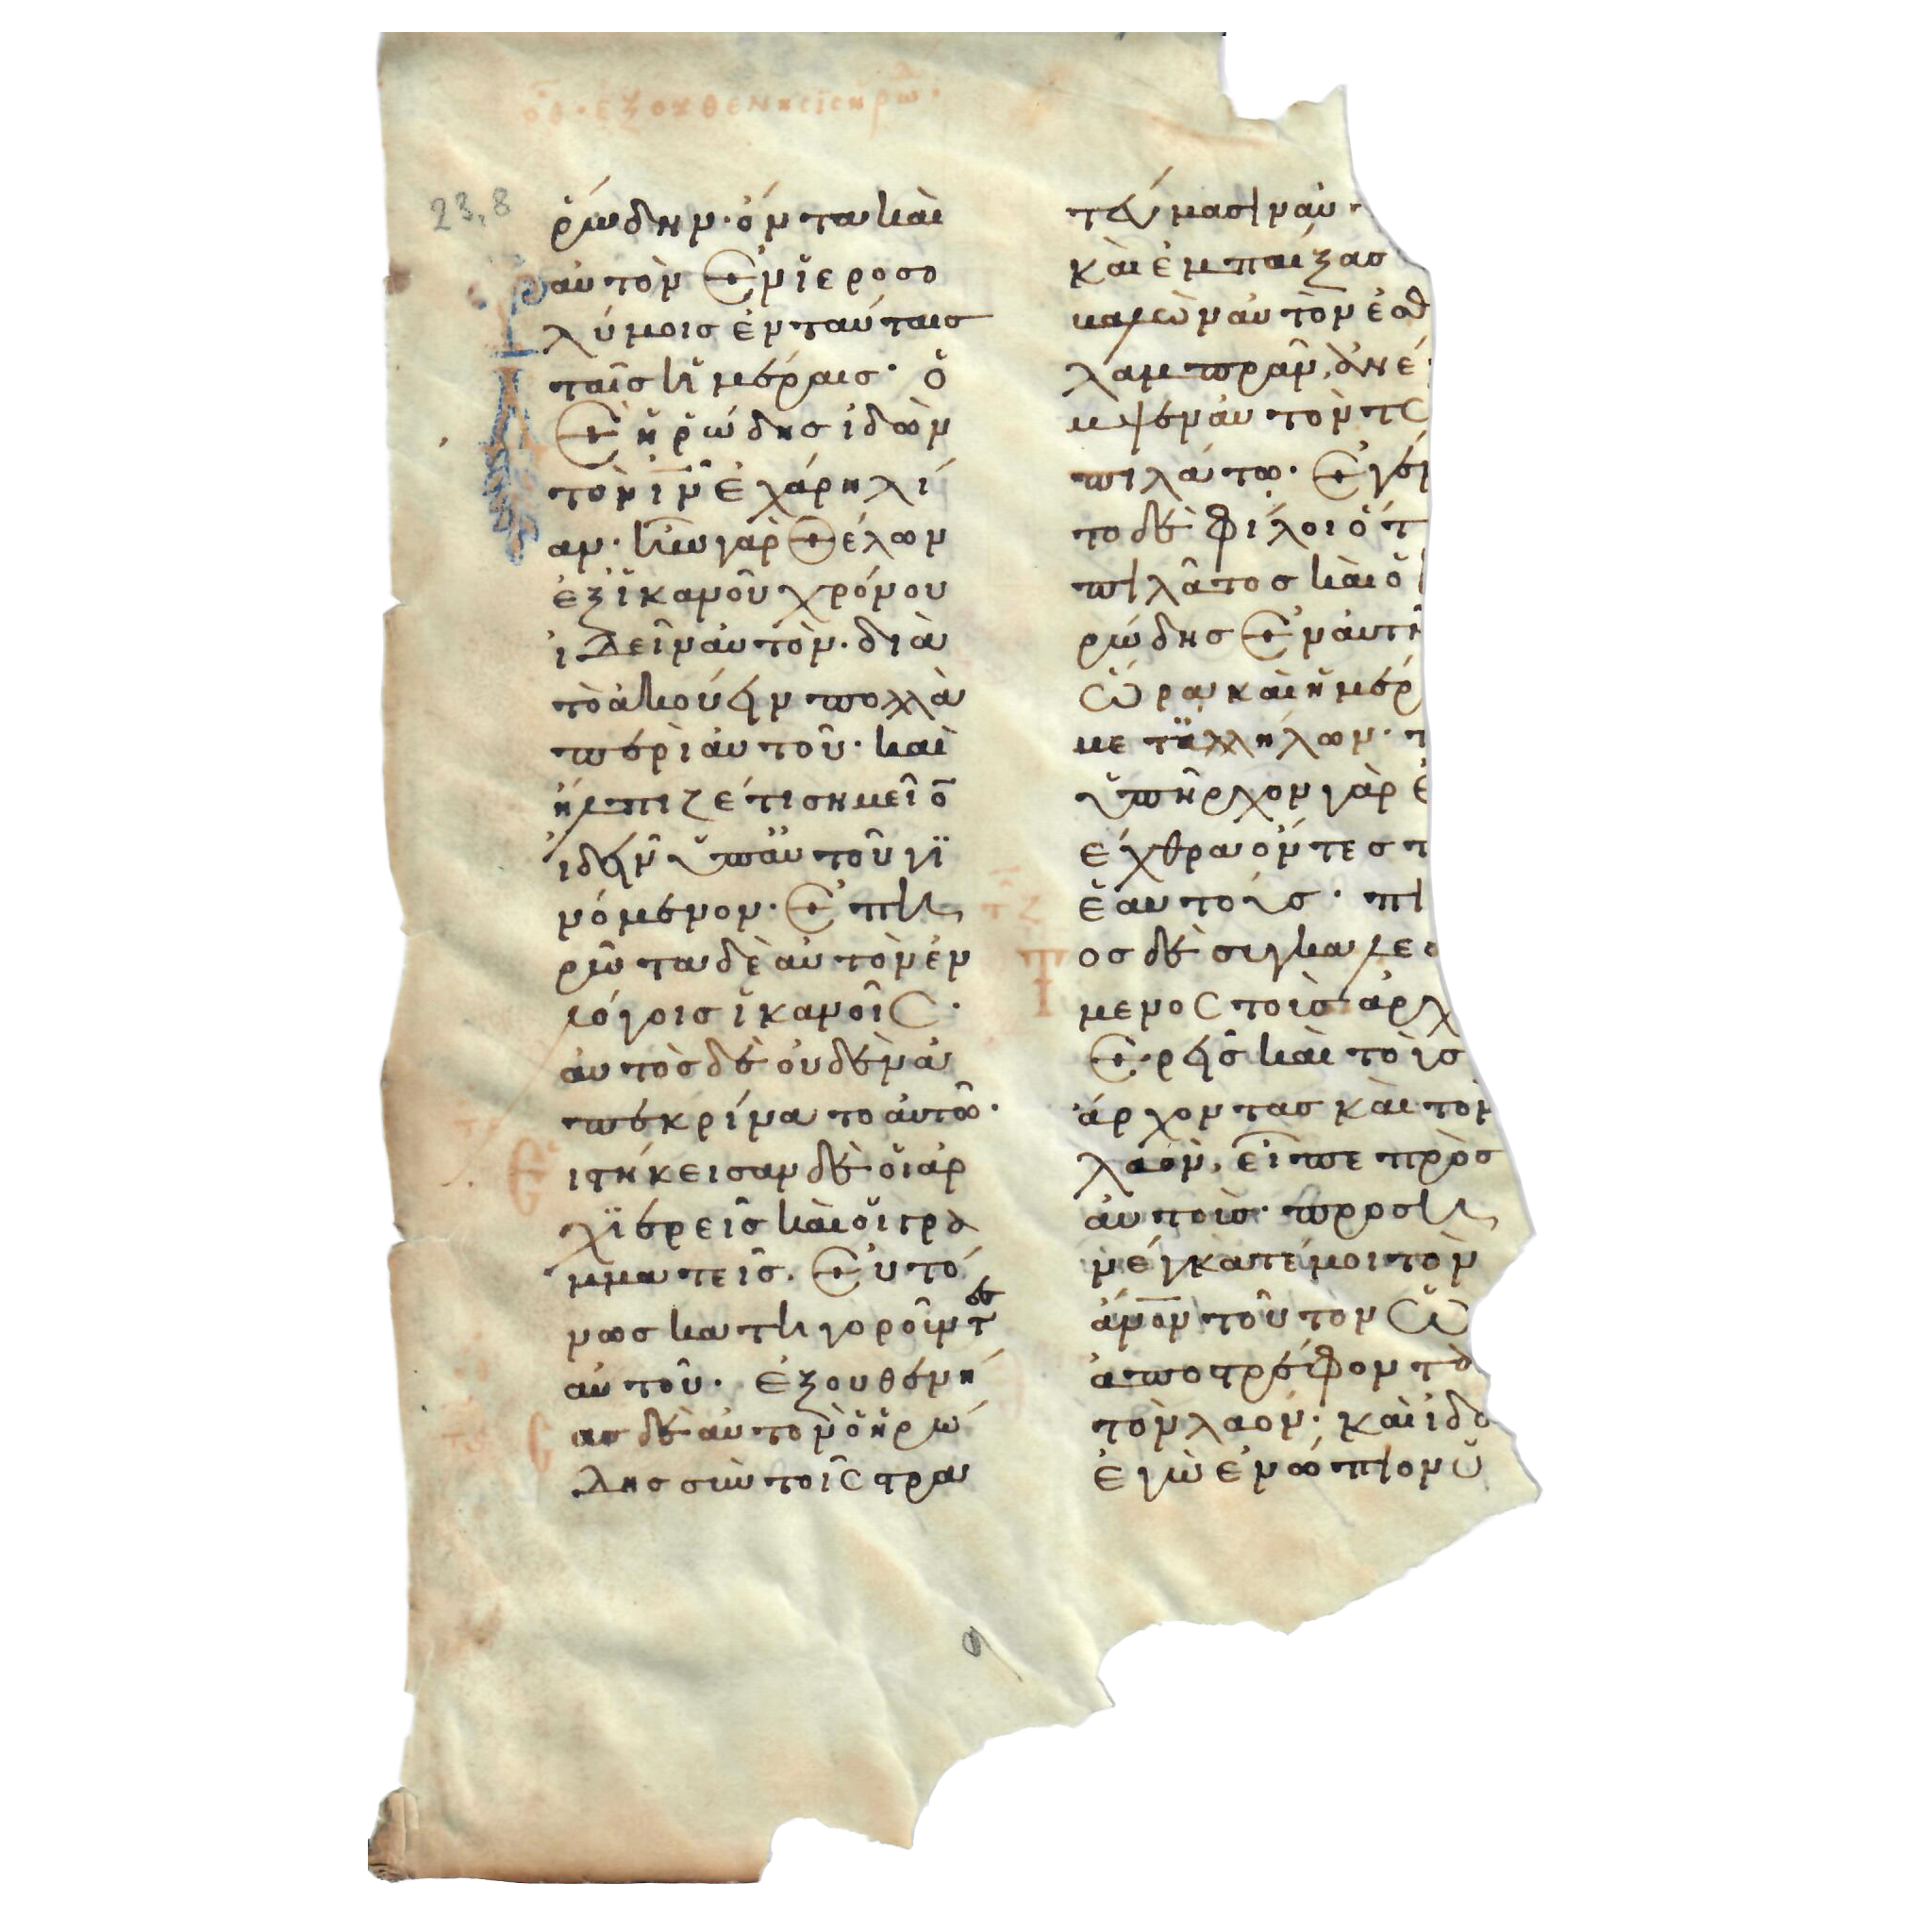 23,8
ρώδην· όντα και
αυτὸν ἐν ϊεροσο
λύμοις ἐν ταύταις
ταῖς ἡμέραις· ὁ
δὲ ἡρώδης ἰδὼν
τὸν ιν ἐχάρη λί
αν· ἦν γὰρ θέλων
ἐξ ἱκανοῦ χρόνου
ἰδεῖν αὐτὸν· διὰ
τὸ ἀκούειν πολλὰ
περὶ αὐτοῦ· καὶ
ἤλπιζέ τι σημεῖο
ἰδεῖν ὑπ' αὐτοῦ γϊ
νόμενον· ἐπη
ρώτα δὲ αὐτὸν ἐν
λόγοις ἱκανοῖς·
αὐτὸς δὲ οὐδὲν ἀ
πεκρίνατο αὐτῶ·
ιστήκεισαν δὲ οἱ ἀρ
χϊερεῖς καὶ οἱ γρα
μματεῖς. εὐτό
νως κατηγοροῦντες
αὐτοῦ· ἐξουθενή
ας δὲ αὐτὸν ὁ ἡρώ
δης σὺν τοῖς στρα
τεύμασιν αὐ
καὶ ἐμπαίξας
λαμπρὰν, ἀνέ
μψεν αὐτὸν τ
πιλάτω· ἐγέν
το δὲ φίλοι ὅ τ
πιλᾶτος καὶ ὁ
ρώδης ἐν αὐτῆ
ὥρα καὶ ἡμέρ
μετ' ἀλλήλων· π
ὑπῆρχον γὰρ ἐ
ἔχθρα ὄντες π
ἑαυτούς· πι
ος δὲ συγκαλεσ
μενος τοὺς ἀρχ
ιερεῖς καὶ τοὺς
ἄρχοντας καὶ τὸν
λαὸν, εἶπε πρὸς
αὐτούς· προση
νέγκατέ μοι τὸν
ἀνον τοῦτον ὡ
ἀποστρέφοντα
τὸν λαὸν· καὶ ἰδο
ἐγὼ ἐνώπιον ὑ